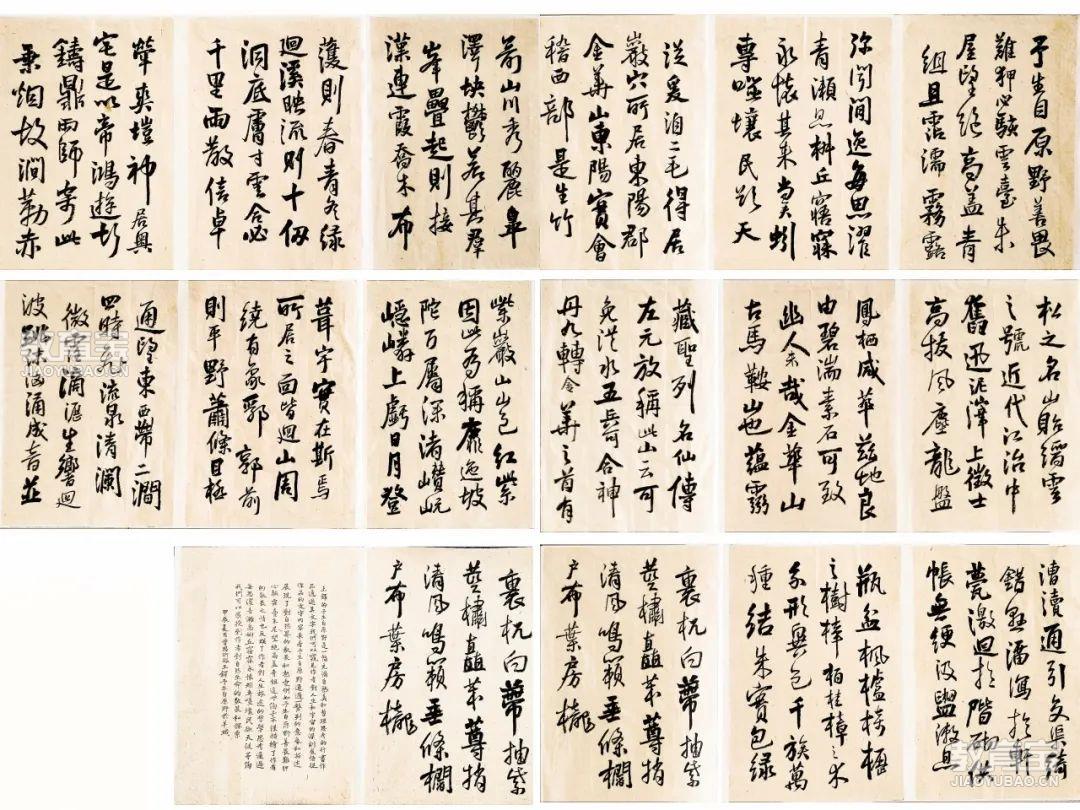 予生自原野善畏
難狎心駭雲臺朱
屋望絕高蓋青
組且霑濡霧露
弥閱閒逸每思濯
青瀬息椒丘寤寐
永懷其来尚矣蚓
專噬壤民欲天
従爰洎二毛得居
巖穴所居東陽郡
金華山東陽實會
稽西部是生竹
箭山川秀麗皐
澤坱鬱若其羣
峯疊起則接
漢連霞喬木布
護則春青冬緑
廻溪映流則十仞
洞底膚寸雲合必
千里雨散信卓
犖爽塏神居奧
宅是以帝鴻遊斯
鑄鼎雨師寄此
乗烟故澗勒赤
松之名山貽縉雲
之號近代江治中
奮迅泥滓上徵士
高拔風塵龍盤
鳳栖咸萃兹地良
由碧湍素石可致
幽人未哉金華山
古馬鞍山也蘊靈
藏聖列名仙傳
左元放稱此山云可
免洪水五兵可合神
丹九轉金華之首有
紫巖山山色紅紫
因此為稱靡迤坡
陀百屬深渚巑岏
嶾嶙上虧日月登
葺宇實在斯焉
所居之面皆廻山周
繞有象郛郭前
則平野蕭條目極
通望東西帶二澗
四時飛流泉清瀾
微霔滴瀝生響廻
波跳沫洶涌成音並
漕瀆通引交渠綺
錯懸溜瀉於軒
甍激迴於階砌供
帳無綆汲盥漱息
瓶盆楓櫨椅櫪
之樹梓柏桂樟之木
分形異色千族萬
種結朱實包緑
裹杌白蔕抽紫
莖橚矗苯䔿捎
清風鳴籟垂條櫩
户布葉房櫳
裹杌白蔕抽紫
莖橚矗苯䔿捎
清風鳴籟垂條櫩
户布葉房櫳
JIAOYUBAO.CN